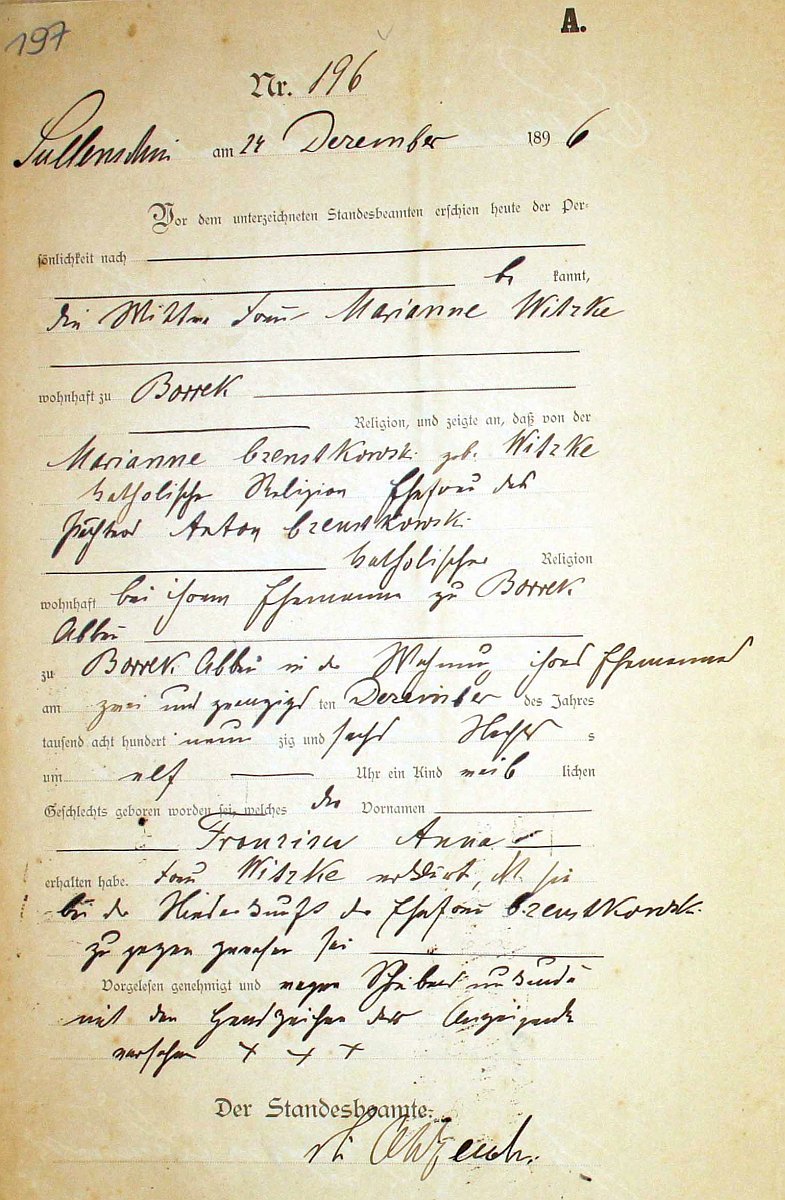 197
A.
Nr. 196
Sullenschin am 24 Dezember 1896
Vor dem unterzeichneten Standesbeamten erschien heute der Per-
sönlichkeit nach
be kannt,
die Wittwe Frau Marianne Witzke
wohnhaft zu Borrek
Religion, und zeigte an, daß von der
Marianne Czenstkowski geb. Witzke
katholischer Religion Ehefrau des
Pächters Anton Czenstkowski
katholischer Religion
wohnhaft bei ihrem Ehemanne zu Borrek
Abbau
zu Borrek Abbau in der Wohnung ihres Ehemannes
am zwei und zwanzigsten Dezember des Jahres
tausend acht hundert neunzig und sechs Nachts
um elf Uhr ein Kind weiblichen
Geschlechts geboren worden sei, welches die Vornamen
Anna
erhalten habe. Frau Witzke erklärt, daß sie
bei der Niederkunft der Ehefrau Czenstkowski
zugegen gewesen sei
Vorgelesen genehmigt und wegen Schreibensunkunde
mit den Handzeichen der Anzeigende
versehen + + +
Der Standesbeamte.